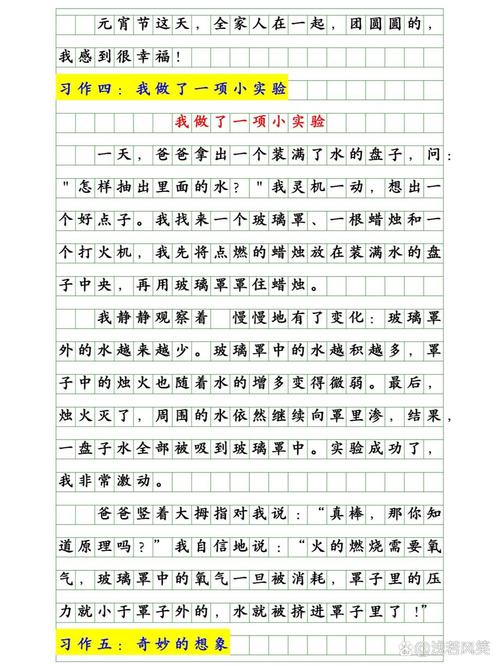 元宵节这天，全家人在一起，团圆圆的，
我感到很幸福！
习作四：我做了一项小实验
我做了一项小实验
一天，爸爸拿出一个装满了水的盘子，问：
"怎样抽出里面的水？"我灵机一动，想出一
个好点子。我找来一个玻璃罩、一根蜡烛和一
个打火机，我先将点燃的蜡烛放在装满水的盘
子中央，再用玻璃罩罩住蜡烛。
我静静观察着 慢慢地有了变化：玻璃罩
外的水越来越少。玻璃罩中的水越积越多，罩
子中的烛火也随着水的增多变得微弱。最后，
烛火灭了，周围的水依然继续向罩里渗，结果，
一盘子水全部被吸到玻璃罩中。实验成功了，
我非常激动。
爸爸竖着大拇指对我说：“真棒，那你知
道原理吗？”我自信地说：“火的燃烧需要氧
气，玻璃罩中的氧气一旦被消耗，罩子里的压
力就小于罩子外的，水就被挤进罩子里了！”
习作五：奇妙的想象